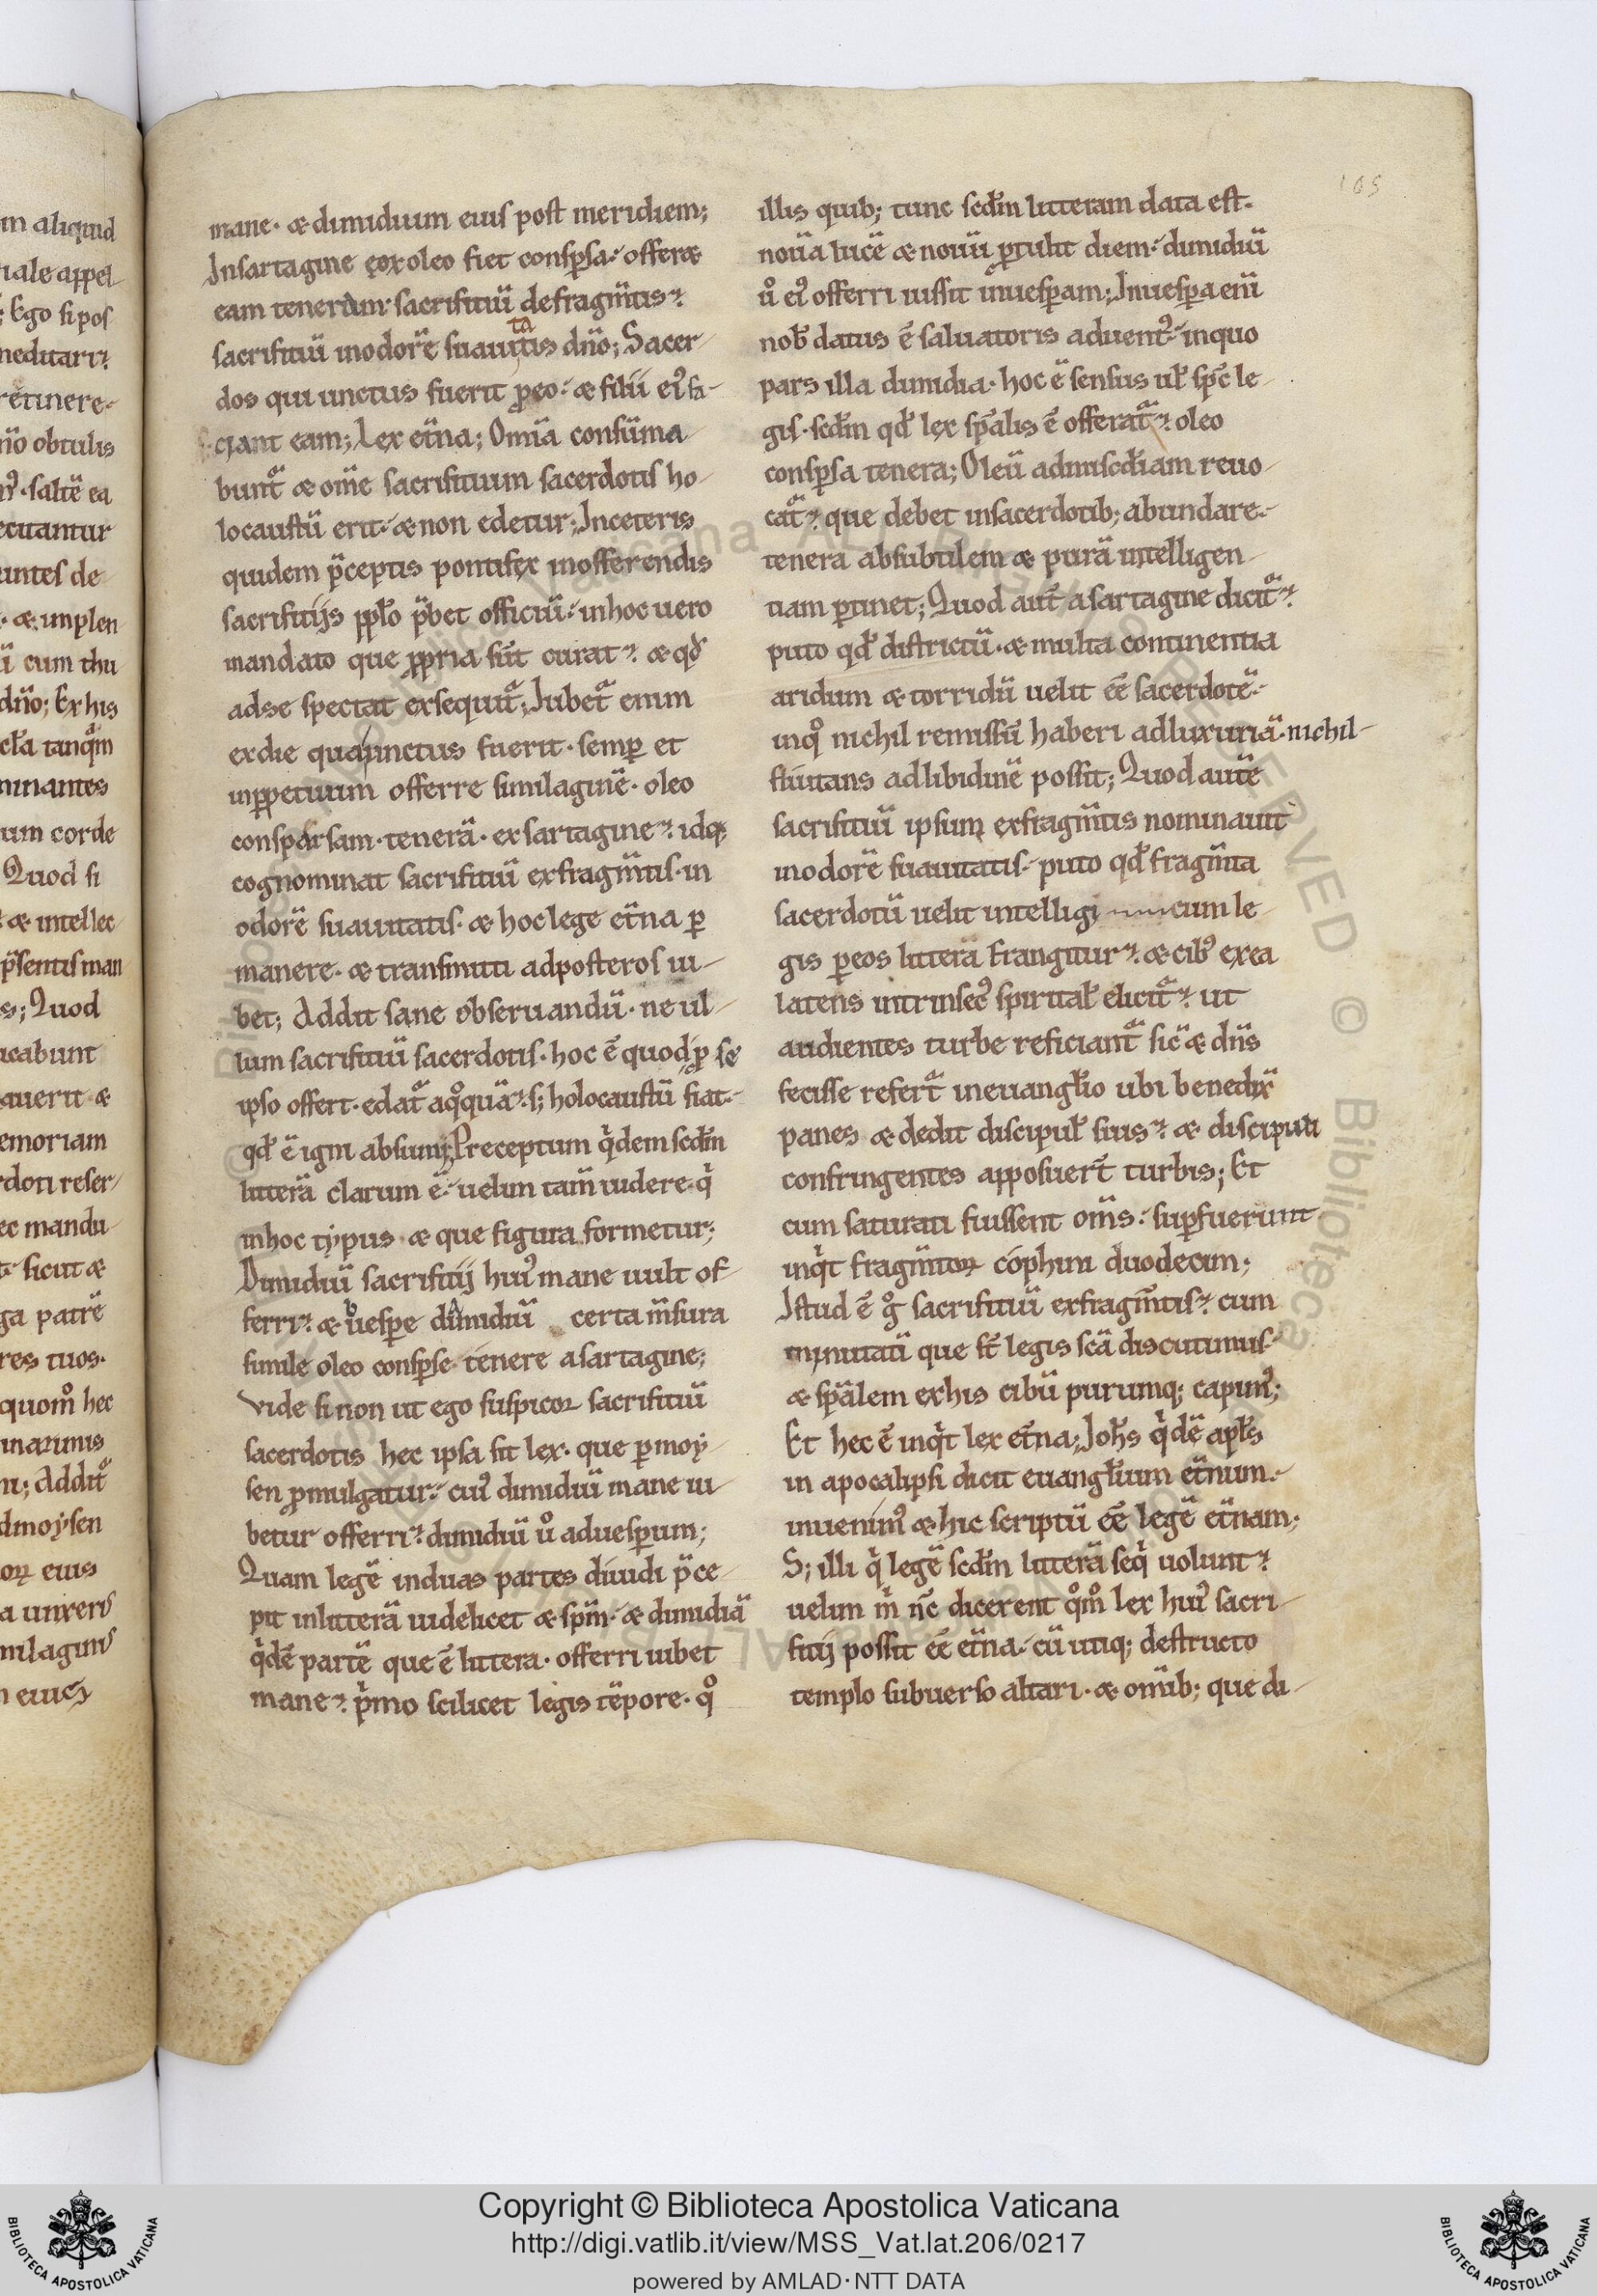 m aliquid
iale appel
Ego si pos
meditari
retinere
obtulis
saltē ea
ecuantur
untes de
& implen
cum thu
dno; Ex his
tanqm
minantes
um corde
Quod si
& intellec
psentis man
s; Quod
icabunt
auerit &
emoriam
doti reser
ec mandu
sicut &
ga patrē
res tuos.
quom hec
m; Addit
dmoysen
eius
105
mane. & dimidium eius post meridiem;
In sartagine ex oleo fiet conspsa. offeret
eam teneram. sacrifitiū de fragmtis.
sacrifitiū in odorē suauitatis dno; Sacer-
dos qui unctus fuerit p eo. & filii ei fa-
ciant eam; Lex etna; Omia consūma-
bunt & ome sacrifitium sacerdotis ho-
locaustū erit. & non edetur; In ceteris
quidem pceptis pontifex in offerendis
sacrifitijs pplo pbet officiū. in hoc uero
mandato que ppria sūt curat. & qd
ad se spectat exsequit; Iubet enim
ex die qua unctus fuerit. semp et
in ppetuum offerre similaginē. oleo
consparsam. tenerā. ex sartagine. idq;
cognominat sacrifitiū ex fragmtis. in
odorē suauitatis. & hoc lege etna p
manere. & transmitti ad posteros iu-
bet; Addit sane obseruandū. ne ul-
lum sacrifitiū sacerdotis. hoc ē quod p se
ipso offert. edat a qoquā. s; holocaustū fiat.
qd ē igni absumi; Preceptum qdem scdm
litterā clarum ē. uelim tam uidere. q
in hoc typus & que figura formetur;
Dimidiū sacrifitij hui mane uult of-
ferri. & uespe dimidiū certa msura
simile oleo conspse tenere a sartagine;
Vide si non ut ego suspicor sacrifitiū
sacerdotis hec ipsa sit lex. que p moy-
sen pmulgatur. cui dimidiū mane iu-
betur offerri. dimidiū uo ad uesperum;
Quam legē in duas partes diuidi pce-
pit in litterā uidelicet & spm. & dimidiā
qdē partē que ē littera. offerri iubet
mane. pmo scilicet legis tēpore. qo
illis quib; tunc scdm litteram data est.
nouā lucē & nouū ptulit diem. dimidiū
uo ei offerri iussit in uespam; In uespa enī
nob datus ē saluatoris aduent. in quo
pars illa dimidia. hoc ē sensus ul spc le-
gis. scdm qd lex spalis ē offerat. oleo
conspsa tenera; Oleū ad miscdiam reuo-
cat. que debet in sacerdotib; abundare.
tenera ab subtilem & purā intelligen-
tiam ptinet; Quod aut a sartagine dicit.
puto qd districtū. & multa continentia
aridum & torridū uelit eē sacerdotē.
in qo nichil remissū haberi ad luxuriā. nichil-
fluitans ad libidinē possit; Quod autē
sacrifitiū ipsum ex fragmtis nominauit
in odorē suauitatis. puto qd fragmta
sacerdotū uelit intelligi cum le-
gis p eos litterā frangitur. & cib ex ea
latens intrinsec spirital elicit. ut
audientes turbe reficiant sic & dns
fecisse refert in euanglio ubi benedix
panes & dedit discipul suis. & discipuli
confringentes apposuert turbis; Et
cum saturati fuissent oms. supfuerunt
inqt fragmtor cophini duodecim;
Istud ē go sacrifitiū ex fragmtis. cum
minutati que st legis scā discutimus.
& spalem ex his cibū purumq; capim;
Et hec ē inqt lex etna; Iohs qdē apls
in apocalipsi dicit euanglium etnum.
inuenim & hic scriptū eē legē etnam;
S; illi q legē scdm litterā seq uolunt.
uelim m nc dicerent qom lex hui sacri-
fitij possit eē etna. cū utiq; destructo
templo subuerso altari. & omib; que di-
Copyright © Biblioteca Apostolica Vaticana
http://digi.vatlib.it/view/MSS_Vat.lat.206/0217
powered by AMLAD·NTT DATA
BIBLIOTECA APOSTOLICA VATICANA
BIBLIOTECA APOSTOLICA VATICANA